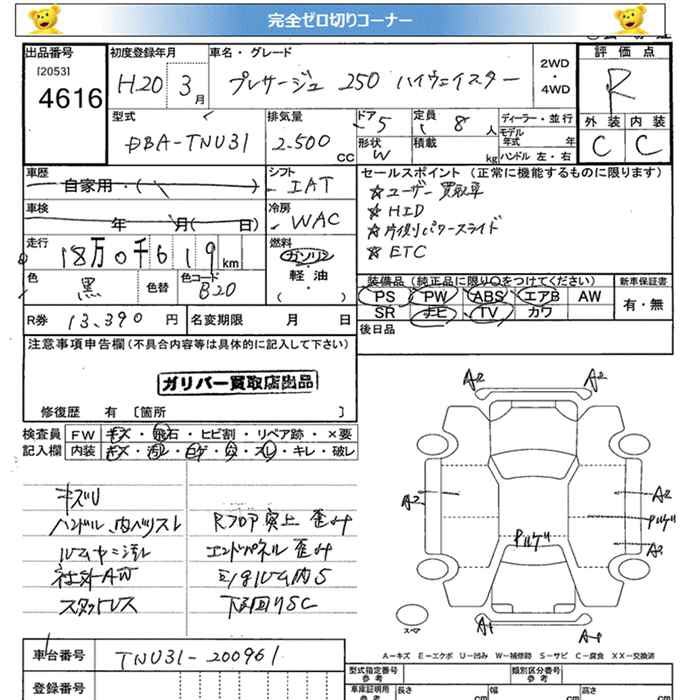 完全ゼロ切りコーナー
出品番号
[2053]
4616
初度登録年月
H20 3月
車名・グレード
プレサージュ 250 ハイウェイスター
2WD
・
4WD
評価点
R
外装 内装
C C
型式
DBA-TNU31
排気量
2.500
CC
ドア
5
定員
8 人
形状
W
積載
kg
ディーラー・並行
モデル
年式 年
ハンドル 左・右
車歴
自家用・( )
シフト
IAT
車検
年 月( 日)
冷房
WAC
走行
18万0千619km
燃料
ガソリン
軽油
( ・ )
色
黒
色替
色コード
B20
セールスポイント (正常に機能するものに限ります)
☆ユーザー買取車
☆HID
☆片側パワースライド
☆ETC
装備品 (純正品に限り○をつけてください)
PS PW ABS エアB AW
SR ナビ TV カワ
新車保証書
有・無
R券 13,390 円
名変期限 月 日
後日品
注意事項申告欄(不具合内容等は具体的に記入して下さい)
ガリバー買取店出品
修復歴 有 [箇所 ]
検査員
記入欄
FW キズ・飛石・ヒビ割・リペア跡・×要
内装 キズ・汚レ・コゲ・穴・スレ・キレ・破レ
キズU
ハンドル、内ベリスレ
ルーム中ニ汚レ
社外AW
スタットレス
Rフロア突上 歪み
エンドパネル 歪み
下回りSC
A2
A2
A2
A2
A2
パルゲ
パルゲ
A1
スペア
A-キズ E-エクボ U-凹み W-補修跡 S-サビ C-腐食 XX-交換済
車台番号
TNU31-200961
登録番号
型式指定番号
参考
類別区分番号
参考
車庫証明用
参考
長さ
cm
幅
cm
高さ
cm